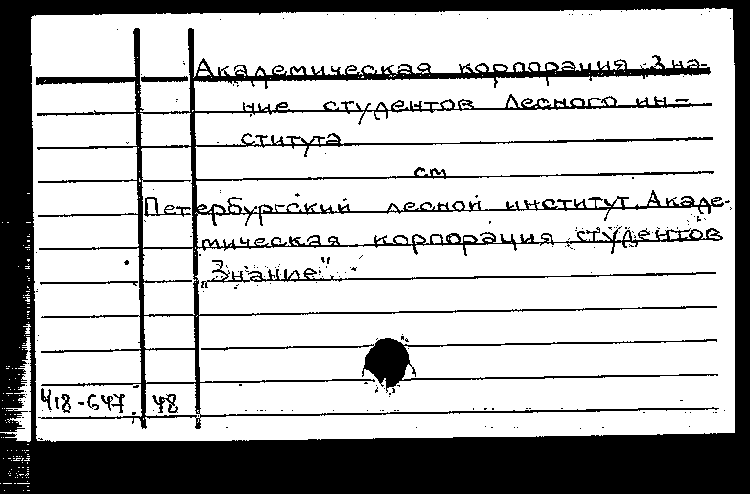 Академическая корпорация Зна-
ние студентов Лесного ин-
ститута
см
Петербургский лесной институт. Акаде-
мическая корпорация студентов
„Знание".
418-647 48